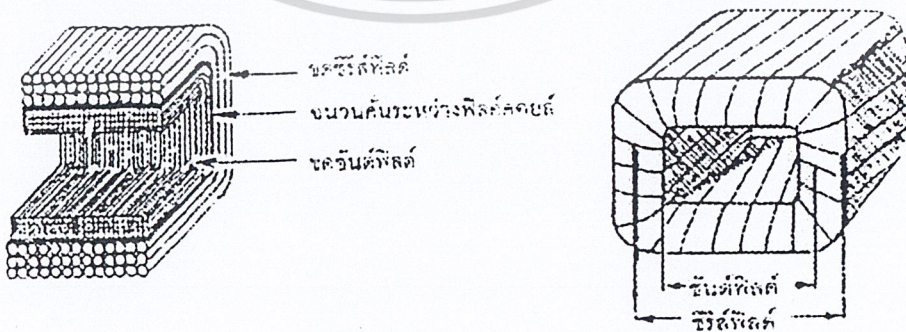 ขดซีรีส์ฟิลด์
ฉนวนคั่นระหว่างฟิลด์คอยล์
ขดชันต์ฟิลด์
ชันต์ฟิลด์
ซีรีส์ฟิลด์